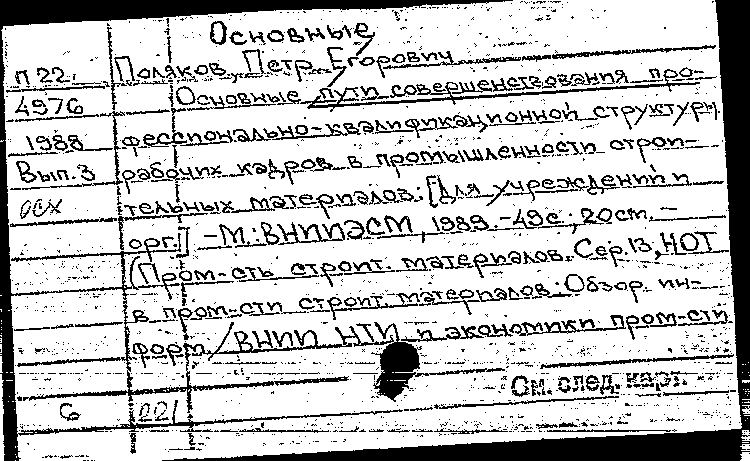 Основные
П 22. Поляков, Петр Егорович
4976 Основные пути совершенствования про-
1988 фессионально-квалификационной структуры
Вып.3 рабочих кадров в промышленности строи-
осх тельных материалов: [Для учреждений и
орг.] -М.: ВНИИЭСМ, 1989.-49с.; 20см. -
(Пром-сть строит. материалов. Сер.13, НОТ
в пром-сти строит. материалов: Обзор. ин-
форм. / ВНИИ НТИ и экономики пром-сти
См. след. карт.
6 221